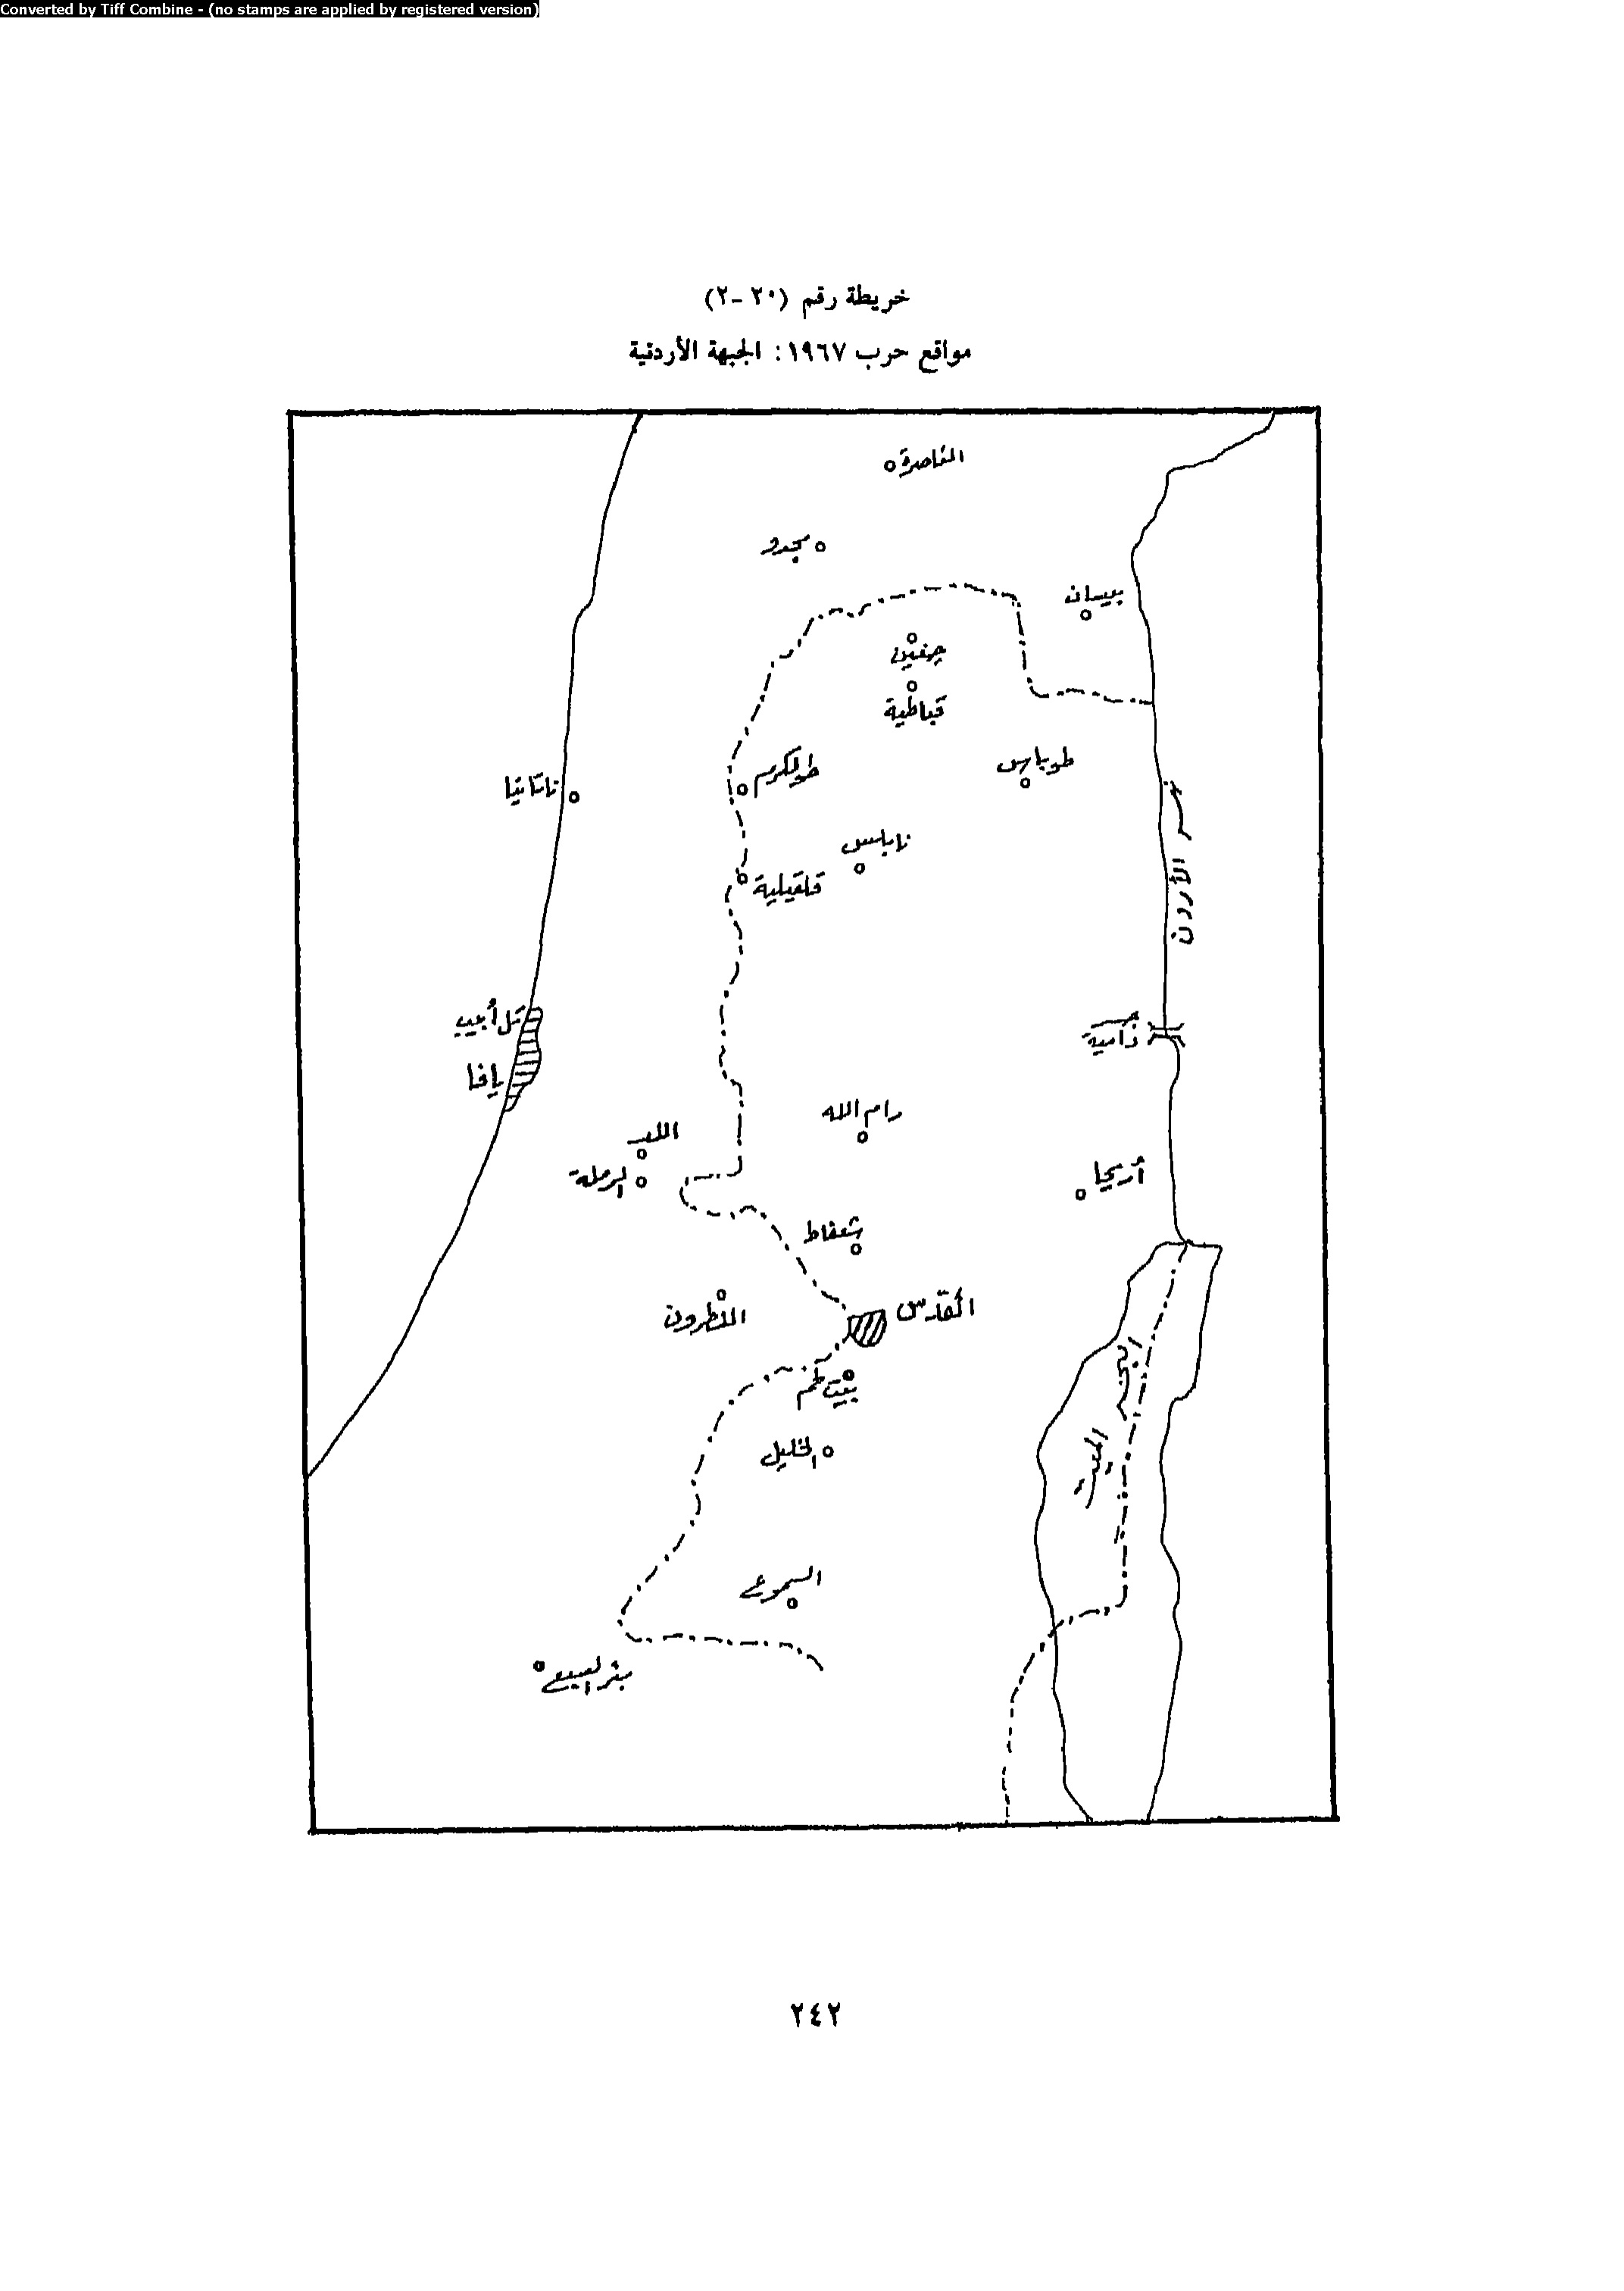 Converted by Tiff Combine - (no stamps are applied by registered version)
خريطة رقم (٢٠-٢)
مواقع حرب ١٩٦٧: الجبهة الأردنية
الناصرة
مجدو
بيسان
جنين
قباطية
طوباس
طولكرم
ناتانيا
نابلس
قلقيلية
نهر الأردن
تل أبيب
دامية
يافا
رام الله
اللد
الرملة
أريحا
شعفاط
القدس
اللطرون
البحر الميت
بيت لحم
الخليل
السموع
بئر السبع
٢٤٢